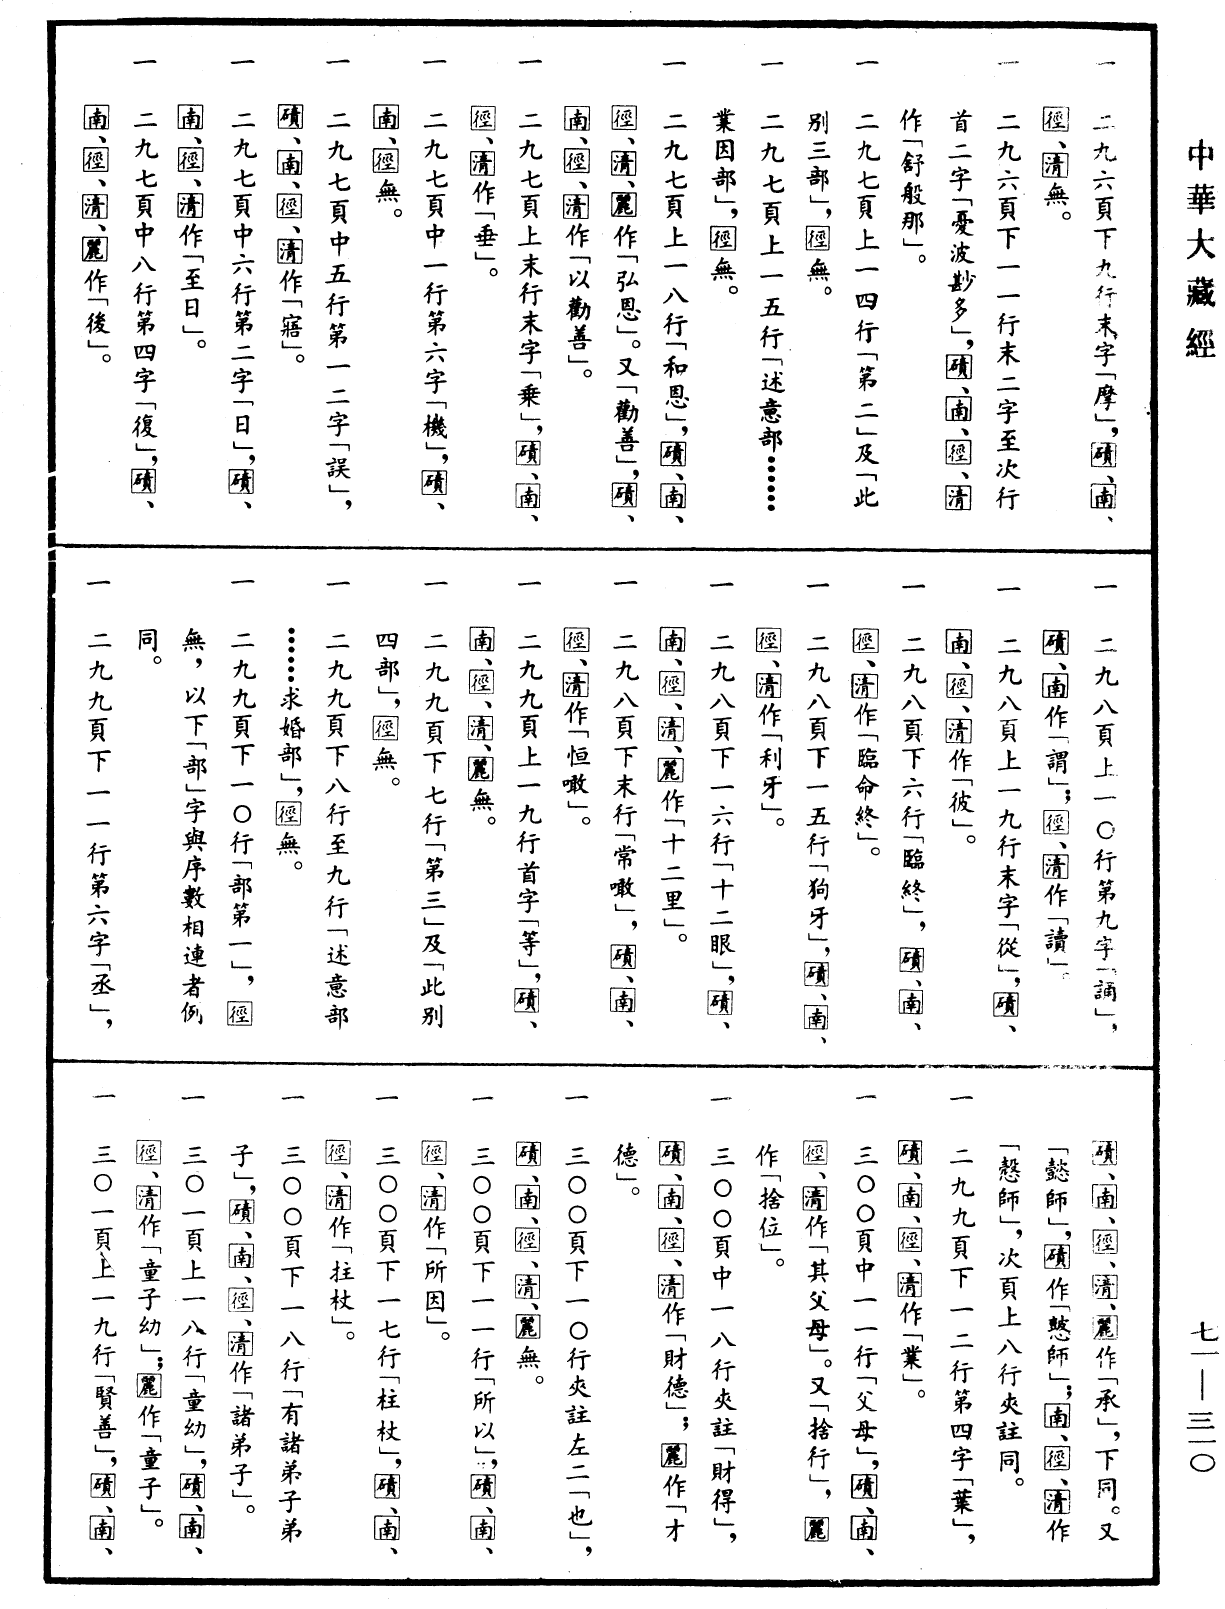 中華大藏經
七一—三一〇
一 二九六頁下九行末字「摩」，磧、南、
徑、清無。
一 二九六頁下一一行末二字至次行
首二字「憂波尠多」，磧、南、徑、清
作「舒般那」。
一 二九七頁上一四行「第二」及「此
別三部」，徑無。
一 二九七頁上一五行「述意部……
業因部」，徑無。
一 二九七頁上一八行「和恩」，磧、南、
徑、清、麗作「弘恩」。又「勸善」，磧、
南、徑、清作「以勸善」。
一 二九七頁上末行末字「乗」，磧、南、
徑、清作「垂」。
一 二九七頁中一行第六字「機」，磧、
南、徑無。
一 二九七頁中五行第一二字「誤」，
磧、南、徑、清作「寤」。
一 二九七頁中六行第二字「日」，磧、
南、徑、清作「至日」。
一 二九七頁中八行第四字「復」，磧、
南、徑、清、麗作「後」。
一 二九八頁上一〇行第九字「誦」，
磧、南作「謂」；徑、清作「讀」。
一 二九八頁上一九行末字「從」，磧、
南、徑、清作「彼」。
一 二九八頁下六行「臨終」，磧、南、
徑、清作「臨命終」。
一 二九八頁下一五行「狗牙」，磧、南、
徑、清作「利牙」。
一 二九八頁下一六行「十二眼」，磧、
南、徑、清、麗作「十二里」。
一 二九八頁下末行「常噉」，磧、南、
徑、清作「恒噉」。
一 二九九頁上一九行首字「等」，磧、
南、徑、清、麗無。
一 二九九頁下七行「第三」及「此別
四部」，徑無。
一 二九九頁下八行至九行「述意部
……求婚部」，徑無。
一 二九九頁下一〇行「部第一」，徑
無，以下「部」字與序數相連者例
同。
一 二九九頁下一一行第六字「丞」，
磧、南、徑、清、麗作「承」，下同。又
「懿師」，磧作「慜師」；南、徑、清作
「慤師」，次頁上八行夾註同。
一 二九九頁下一二行第四字「葉」，
磧、南、徑、清作「業」。
一 三〇〇頁中一一行「父母」，磧、南、
徑、清作「其父母」。又「捨行」，麗
作「捨位」。
一 三〇〇頁中一八行夾註「財得」，
磧、南、徑、清作「財德」；麗作「才
德」。
一 三〇〇頁下一〇行夾註左二「也」，
磧、南、徑、清、麗無。
一 三〇〇頁下一一行「所以」，磧、南、
徑、清作「所因」。
一 三〇〇頁下一七行「柱杖」，磧、南、
徑、清作「拄杖」。
一 三〇〇頁下一八行「有諸弟子弟
子」，磧、南、徑、清作「諸弟子」。
一 三〇一頁上一八行「童幼」，磧、南、
徑、清作「童子幼」；麗作「童子」。
一 三〇一頁上一九行「賢善」，磧、南、